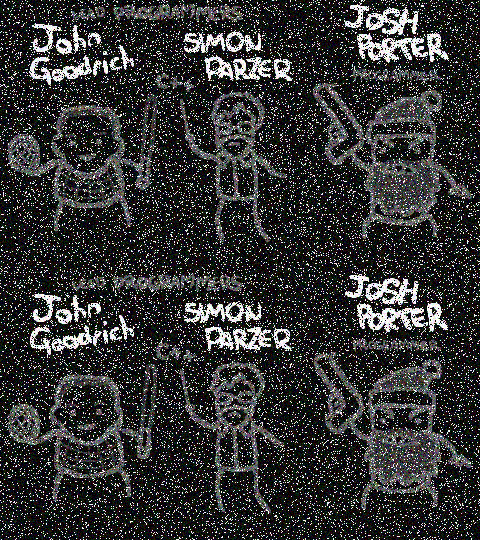 LEAD PROGRAMMERS
John
Goodrich
SIMON
PARZER
JOSH
PORTER
LEAD PROGRAMMERS
John
Goodrich
SIMON
PARZER
JOSH
PORTER